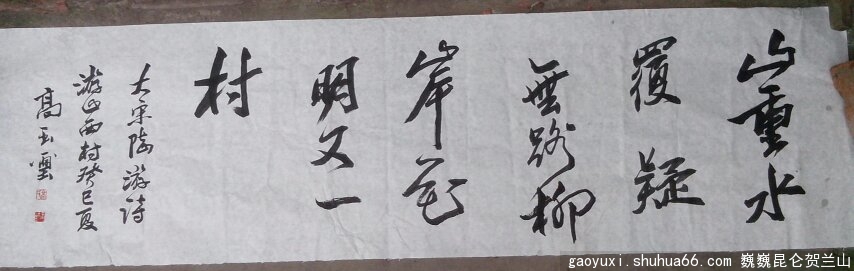 山重水
覆疑
無路柳
岸花
明又一
村
大宋陸游詩
游山西村癸巳夏
高玉璽
gaoyuxi.shuhua66.com 巍巍昆仑贺兰山